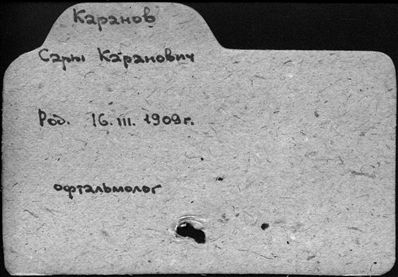 Каранов
Сары Каранович
Род. 16.III.1909г.
офтальмолог